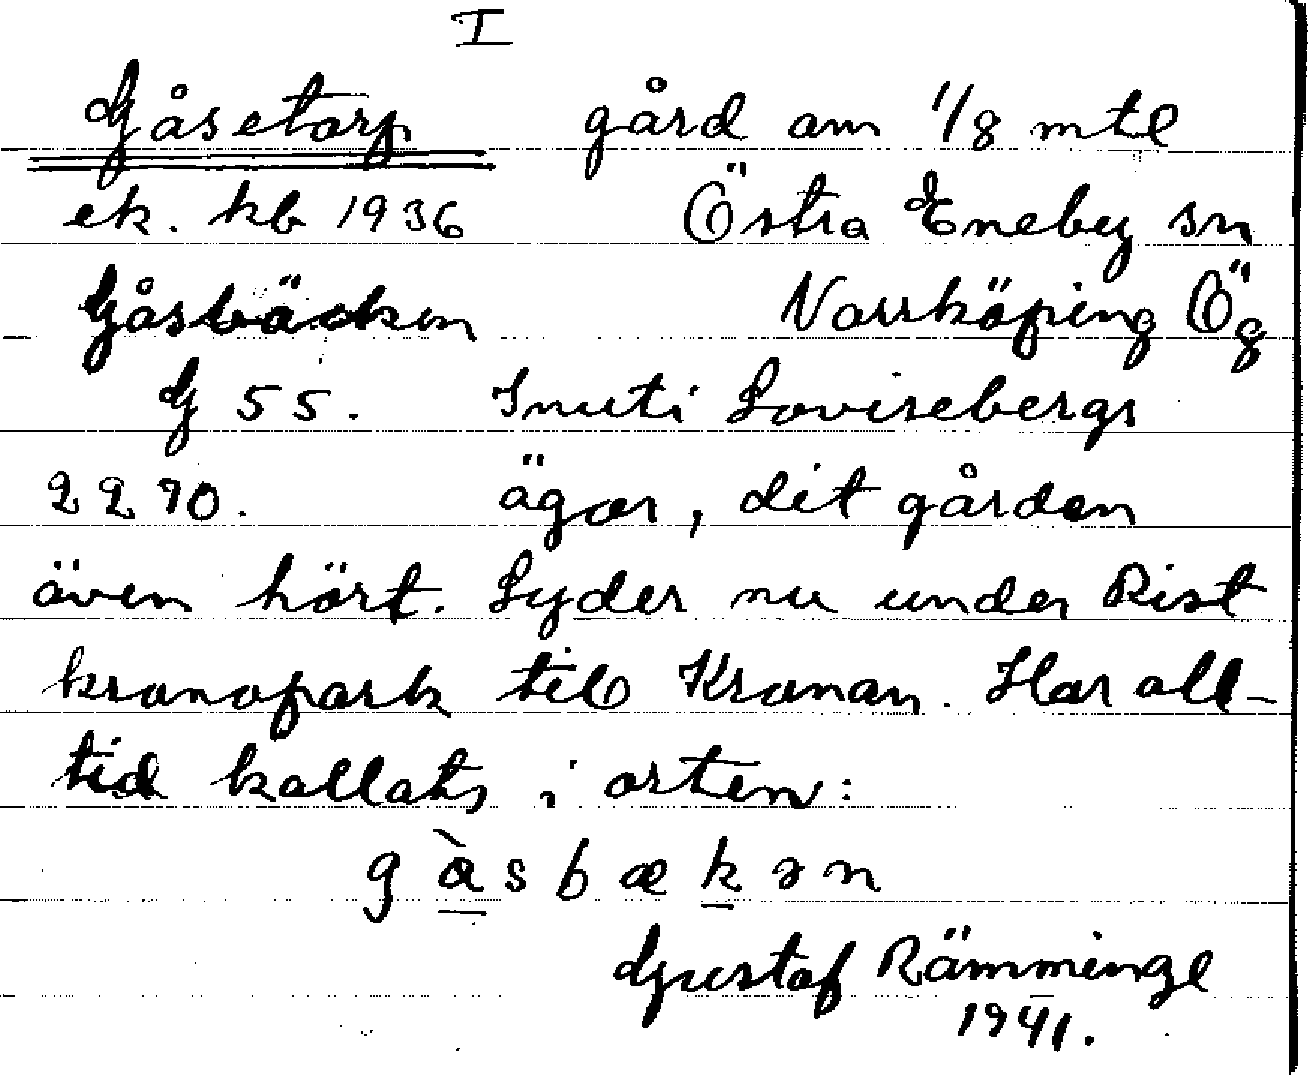 I
Gåsetorp gård om 1/8 mtl
ek. kb 1936 Östra Eneby sn
Gåsbäcken Norrköping Ög
G 55. Inuti Lovisebergs
2290. ägor, dit gården
även hört. Lyder nu under Rist
kronopark till Kronan. Har all-
tid kallats i orten:
gàsbækən
Gustaf Rämminge
1941.